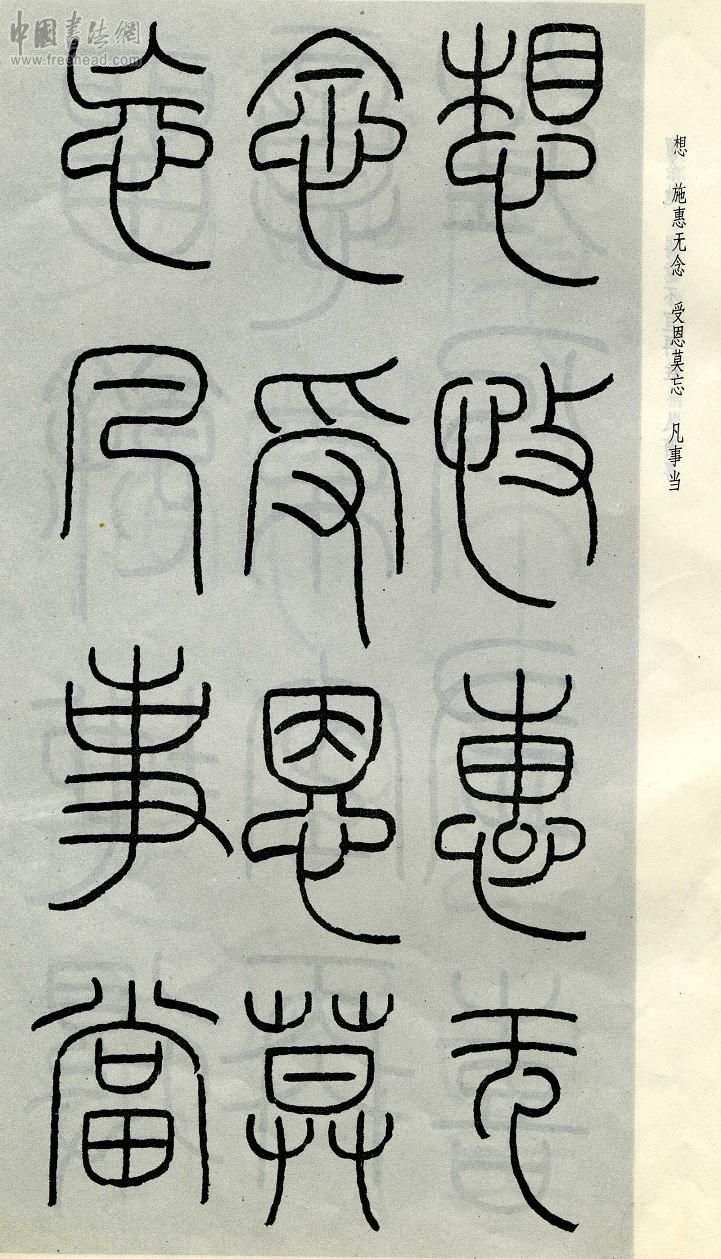 中國书法網
www.freehead.com
想　施惠无念　受恩莫忘　凡事当
想施惠无
念受恩莫
忘凡事當